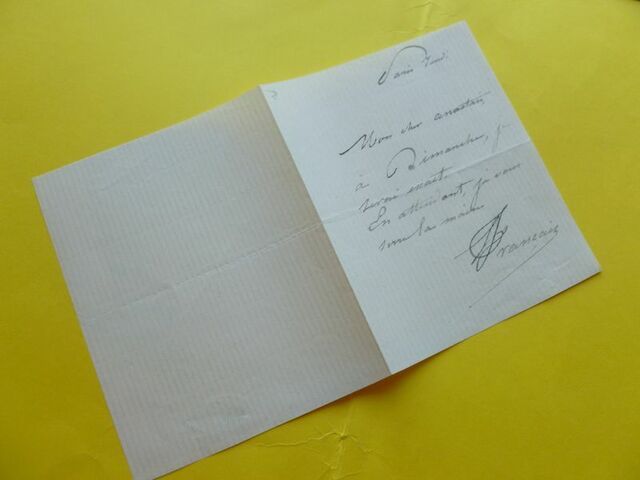 Paris Vend.
Mon cher anastasi
à Dimanche, je
serai exact.
En attendant, je vous
serre la main
Français